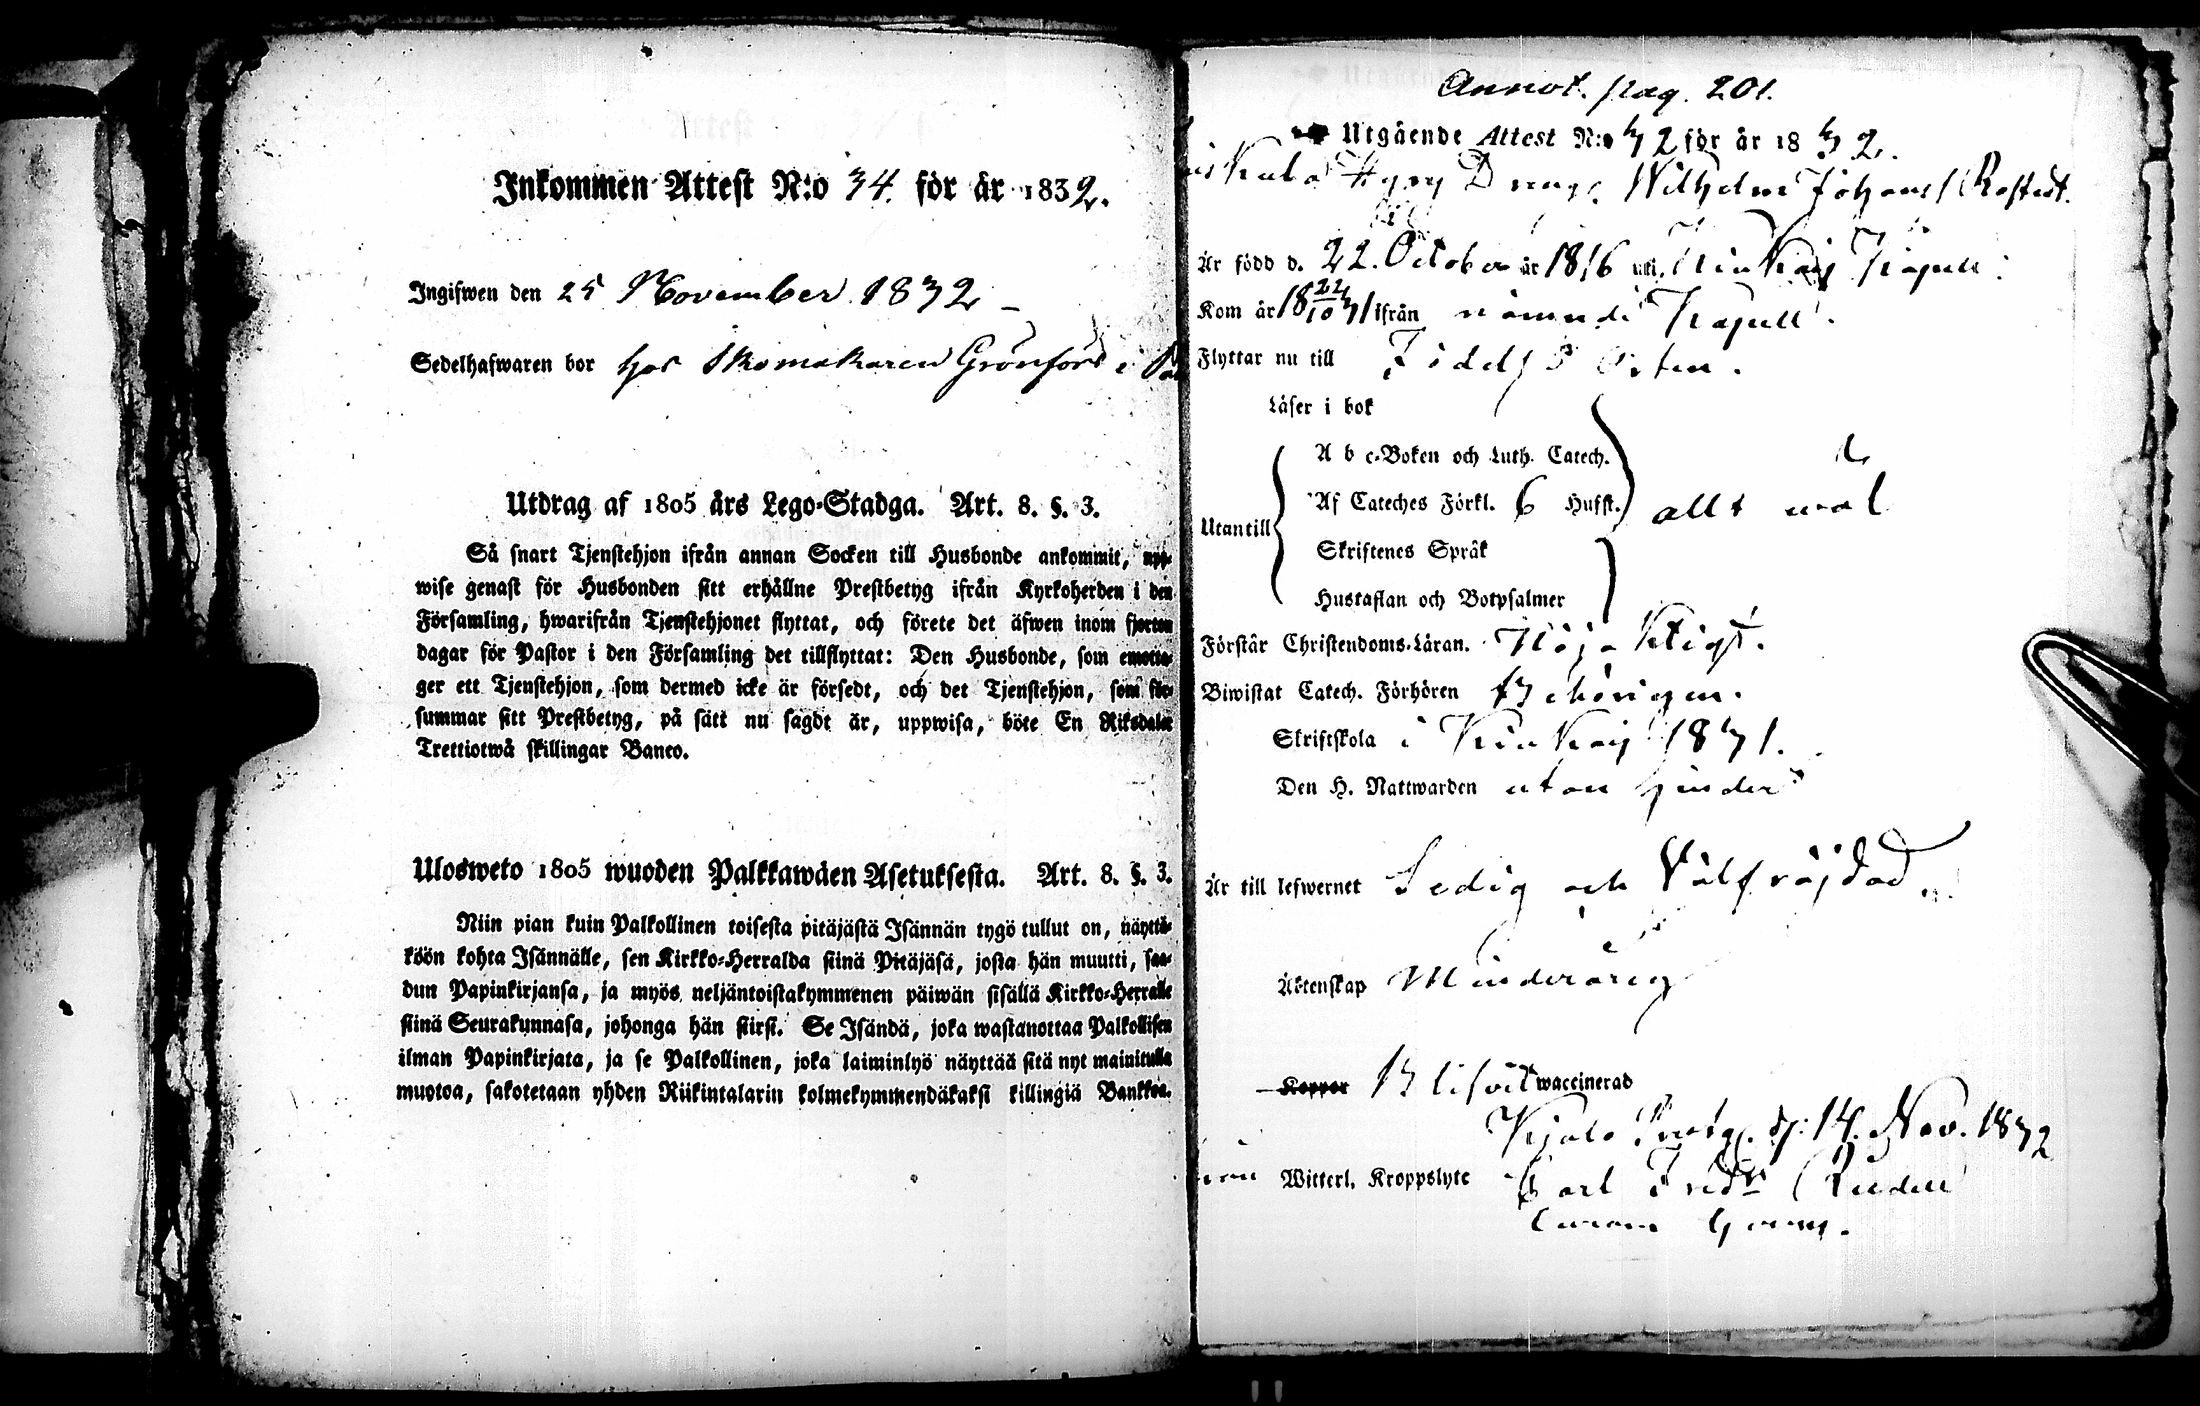 Inkommen Attest N:o 34. för år 1832.
Ingifwen den 25 November 1832
Sedelhafwaren bor hos Skomakaren Grönfors i
Utdrag af 1805 års Lego-Stadga. Art. 8. §. 3.
Så snart Tjenstehjon ifrån annan Socken till Husbonde ankommit, upp-
wise genast för Husbonden sitt erhållne Prestbetyg ifrån Kyrkoherden i den
Församling, hwarifrån Tjenstehjonet flyttat, och förete det äfwen inom fjorton
dagar för Pastor i den Församling det tillflyttat: Den Husbonde, som emotta-
ger ett Tjenstehjon, som dermed icke är försedt, och det Tjenstehjon, som för-
summar sitt Prestbetyg, på sätt nu sagdt är, uppwisa, böte En Riksdaler
Trettiotwå skillingar Banco.
Ulosweto 1805 wuoden Palkkawäen Asetuksesta. Art. 8. §. 3.
Niin pian kuin Palkollinen toisesta pitäjästä Isännän tygö tullut on, näyttä-
köön kohta Isännälle, sen Kirkko-Herralda siinä Pitäjäsä, josta hän muutti, saa-
dun Papinkirjansa, ja myös neljäntoistakymmenen päiwän sisällä Kirkko-Herralle
siinä Seurakunnasa, johonga hän siirsi. Se Isändä, joka wastanottaa Palkollisen
ilman Papinkirjata, ja se Palkollinen, joka laiminlyö näyttää sitä nyt mainitulla
muotoa, sakotetaan yhden Riikintalarin kolmekymmendäkaksi killingiä Bankkoa.
Annot. pag. 201.
Utgående Attest N:o 32 för år 1832.
Dreng. Wilhelm Johans
Är född d. 22. October år 1816 uti Kapell
Kom år 18 22/10 31 ifrån nämnde Kapell.
Flyttar nu till Orten.
Läser i bok
A b c-Boken och Luth. Catech.
Utantill Af Cateches Förkl. 6 Hufst. allt wäl
Skriftenes Språk
Hustaflan och Botpsalmer
Förstår Christendoms-Läran. Nöjaktigt.
Biwistat Catech. Förhören Behörigen.
Skriftskola i 1831.
Den H. Nattwarden utan hinder
Är till lefwernet Ledig och Välfräjdad
Äktenskap Minderårig
Koppor Blifvit waccinerad
d. 14. Nov. 1832
Witterl. Kroppslyte Carl Fredr